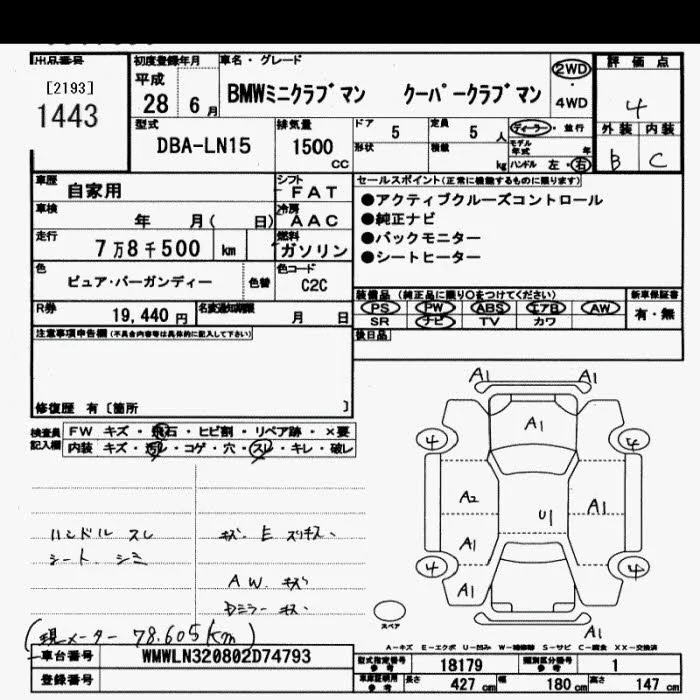 出品番号
[2193]
1443
初度登録年月
平成
28 6月
車名・グレード
BMWミニクラブマン クーパークラブマン
2WD
・
4WD
評価点
4
外装 内装
B C
型式
DBA-LN15
排気量
1500
CC
ドア 5
定員 5人
形状
積載 kg
ディーラー・並行
モデル年式 年
ハンドル 左・右
車歴
自家用
シフト
FAT
車検
年 月( 日)
冷房
AAC
走行
7万8千500 km
燃料
ガソリン
色
ピュア・バーガンディー
色替
色コード
C2C
R券
19,440円
名変通知期限
月 日
セールスポイント(正常に機能するものに限ります)
●アクティブクルーズコントロール
●純正ナビ
●バックモニター
●シートヒーター
装備品(純正品に限り○をつけてください)
PS PW ABS エアB AW
SR ナビ TV カワ
新車保証書
有・無
後日品
注意事項申告欄(不具合内容等は具体的に記入して下さい)
修復歴 有〔箇所 〕
検査員記入欄
FW キズ・飛石・ヒビ割・リペア跡・×要
内装 キズ・汚レ・コゲ・穴・スレ・キレ・破レ
ハンドル スレ
シート シミ
AW キズ
Dミラー キズ
(現メーター 78,605km)
A1 A1
A1
4 4
A2
A1
U1
A1
4 4
A1
A1
スペア
A-キズ E-エクボ U-凹み W-補修跡 S-サビ C-腐食 XX-交換済
車台番号
WMWLN320802D74793
登録番号
型式指定番号
参考
18179
類別区分番号
参考
1
車庫証明用
参考
長さ 427cm 幅 180cm 高さ 147cm